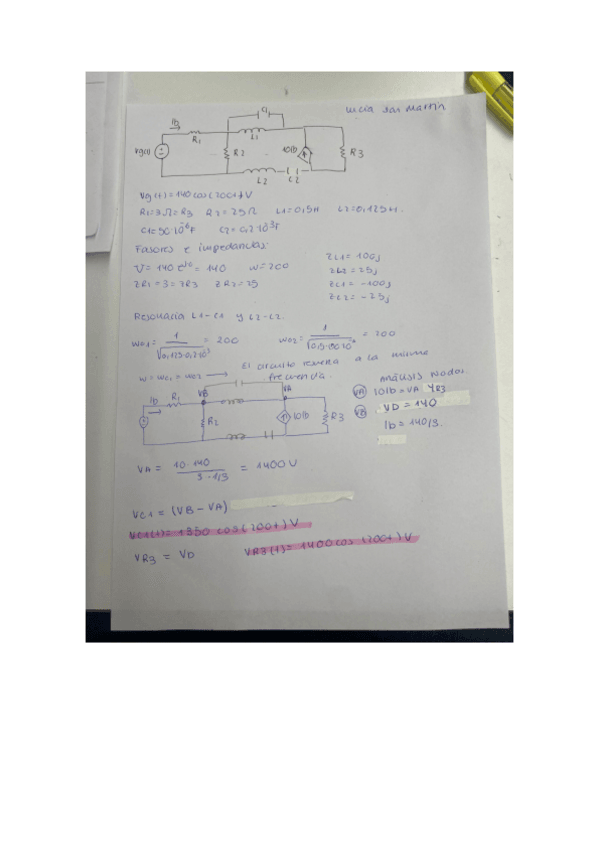 Lucía San Martín
C1
Ib
R1
L1
Vg(t)
R2
10Ib
R3
L2
C2
Vg(t)=140 cos(200t) V
R1=3Ω=R3 R2=25Ω L1=0,5H L2=0,125H.
C1=50·10⁻⁶F C2=0,2·10⁻³F
Fasores e impedancias:
V=140 e^j0 = 140 w=200
ZR1=3=ZR3 ZR2=25
ZL1= 100j
ZL2= 25j
ZC1= -100j
ZC2= -25j
Resonancia L1-C1 y L2-C2.
w01= 1/√0,125·0,2·10⁻³ = 200 w02= 1/√0,5·50·10⁻⁶ = 200
El circuito resuena a la misma
frecuencia.
Análisis Nodos
Ib
R1
VB
VA
R2
10Ib
R3
VA 10Ib = VA/R3
VB VD = 140
Ib = 140/3.
VA = 10·140/3·1/3 = 1400 V
VC1 = (VB - VA)
VC1(t)= 1350 cos(200t) V
VR3 = VD VR3(t)= 1400 cos (200t) V